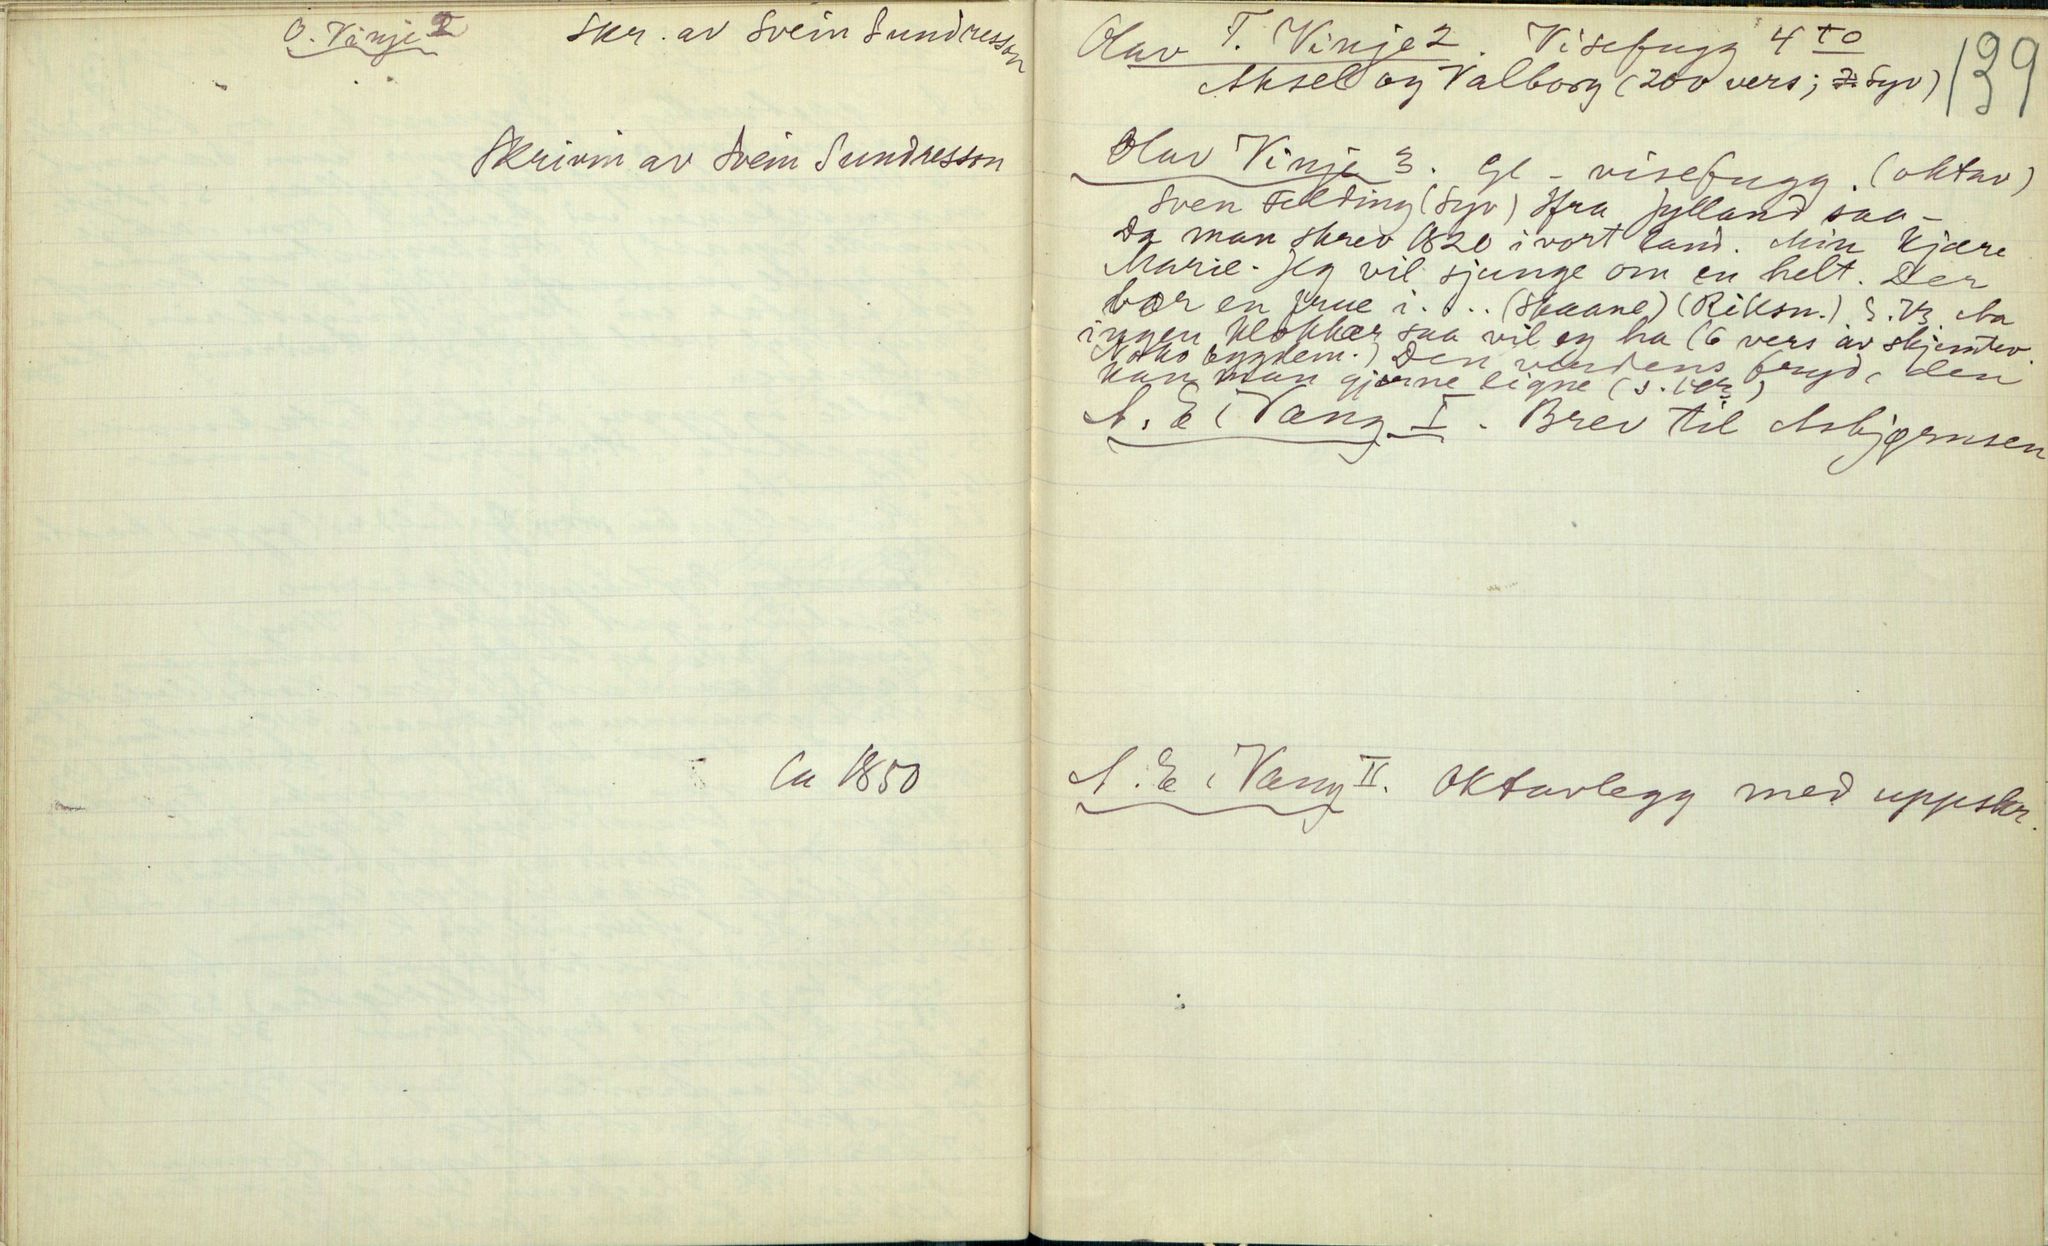 O. Vinje 2 Skr. av Svein Sundresson
Skrivin av Svein Sundresson
Ca 1850
139
Olav T. Vinje 2. Visefugg 4to
Aksel og Valborg (200 vers; Syv)
Olav Vinje 3. Gl - visefugg. (oktav)
Sven Felding (Syv) Ifra Jylland saa -
Da man skrev 1820 i vort land. Min kjære
Marie. Jeg vil sjunge om en helt. Der
bor en frue i . . . (Skaane) (Riksn.) Aa
ingen klokkar saa vil eg ha (6 vers av skjemtev.
Noko bygdem.) Den verdens fryd, den
kan man gjerne ligne
A. E. i Vang I. Brev til Asbjørnsen
A. E. i Vang II. Oktavlegg med uppskr.